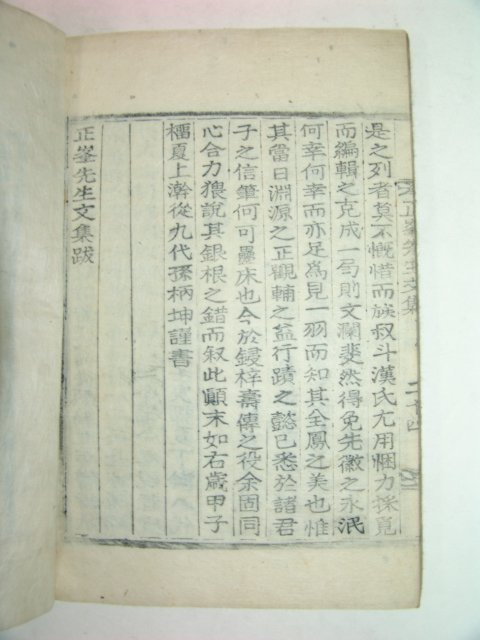 是之列者莫不慨惜而族叔斗漢氏尤用悃力採覓
而編輯之克成一局則文瀾斐然得免先徽之永泯
何幸何幸而亦足爲見一羽而知其全鳳之美也惟
其當日淵源之正觀輔之益行蹟之懿已悉於諸君
子之信筆何可疊床也今於鋟梓壽傳之役余固同
心合力猥說其銀根之錯而叙此顚末如右歲甲子
榴夏上澣從九代孫柄坤謹書
正峯先生文集跋
正峯先生文集
二十四